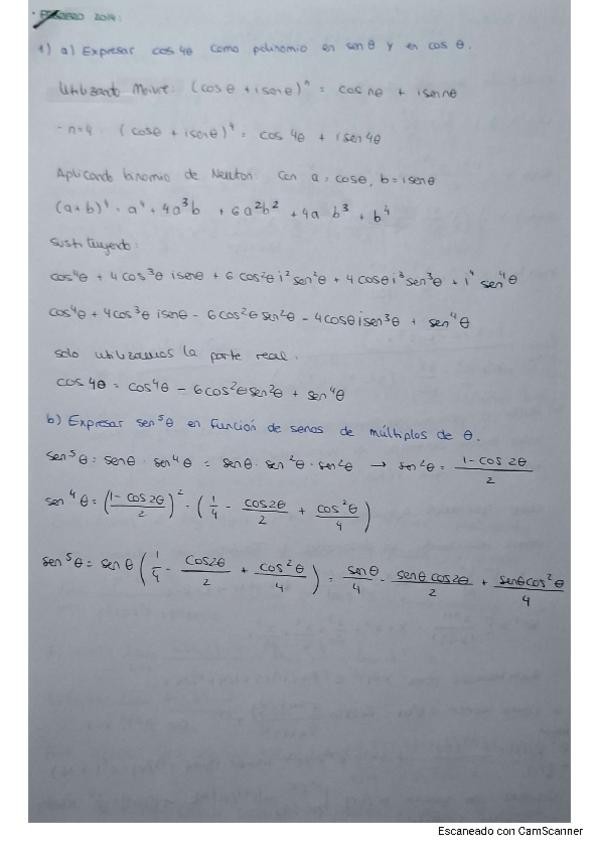 FEBRERO 2014:
1) a) Expresar cos 4θ como polinomio en sen θ y en cos θ.
Utilizando Moivre: (cos θ + i sen θ)ⁿ = cos nθ + i sen nθ
- n=4 (cos θ + i sen θ)⁴ = cos 4θ + i sen 4θ
Aplicando binomio de Newton con a = cos θ, b = i sen θ
(a+b)⁴ = a⁴ + 4a³b + 6a²b² + 4a b³ + b⁴
Sustituyendo:
cos⁴θ + 4 cos³θ i sen θ + 6 cos²θ i² sen²θ + 4 cos θ i³ sen³θ + i⁴ sen⁴θ
cos⁴θ + 4cos³θ i sen θ - 6cos²θ sen²θ - 4cos θ i sen³θ + sen⁴θ
solo utilizamos la parte real.
cos 4θ = cos⁴θ - 6cos²θ sen²θ + sen⁴θ
b) Expresar sen⁵θ en función de senos de múltiplos de θ.
sen⁵θ = sen θ · sen⁴θ = sen θ · sen²θ · sen²θ → sen²θ = (1 - cos 2θ)/2
sen⁴θ = ((1 - cos 2θ)/2)² = (1/4 - cos2θ/2 + cos²θ/4)
sen⁵θ = sen θ (1/4 - cos2θ/2 + cos²θ/4) = sen θ/4 - sen θ cos 2θ/2 + sen θ cos²θ/4
Escaneado con CamScanner